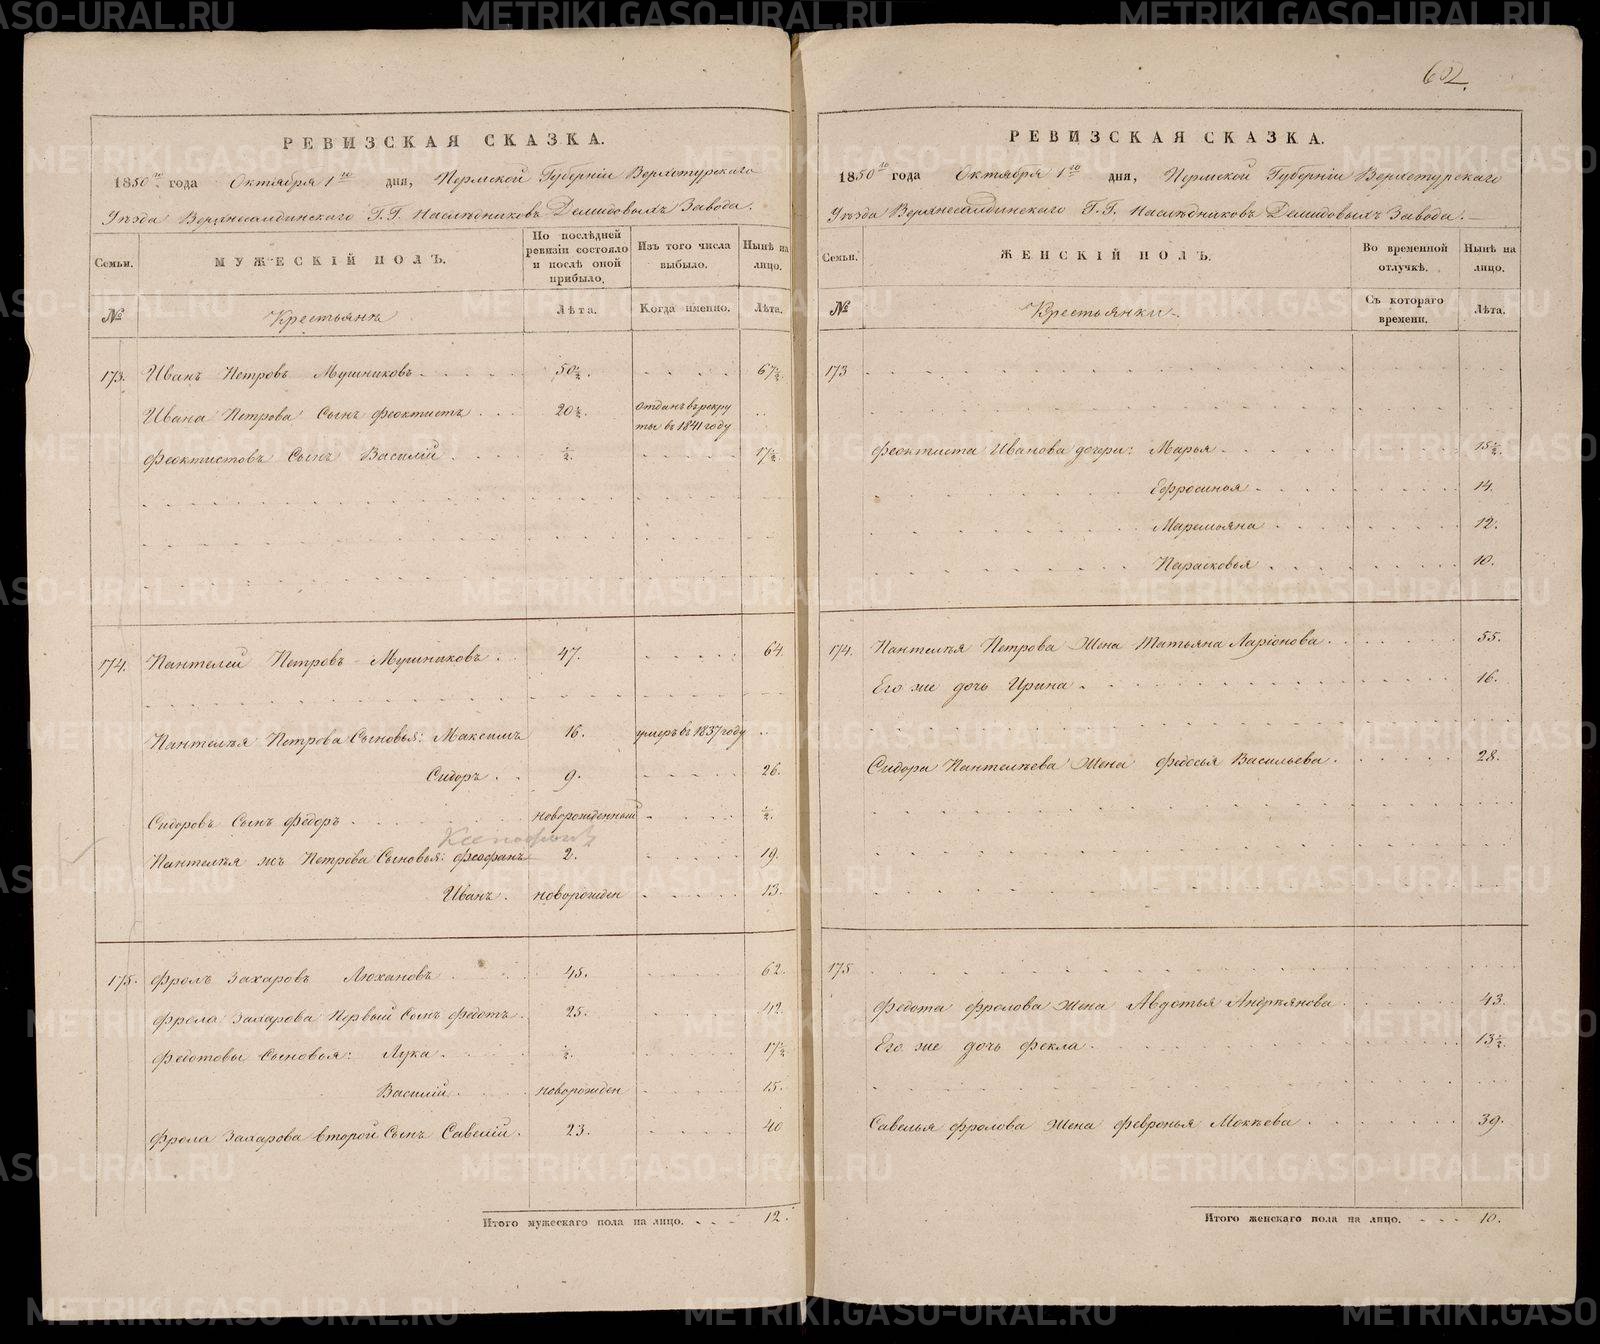 602.
РЕВИЗСКАЯ СКАЗКА.
1850го года Октября 1го дня, Пермской Губернiи Верхотурскаго
Уѣзда Верхнесалдинскаго Г.Г. Наслѣдниковъ Демидовыхъ Завода.
Семьи.
МУЖЕСКIЙ ПОЛЪ.
По послѣдней ревизiи состояло и послѣ оной прибыло.
Изъ того числа выбыло.
Нынѣ на лицо.
№
Крестьянъ
Лѣта.
Когда именно.
Лѣта.
173. Иванъ Петровъ Мушниковъ 50½. 67½.
Ивана Петрова Сынъ Феоктистъ 20½. отданъ въ рекру
ты въ 1841 году
Феоктистовъ Сынъ Василiй ½. 17½.
174. Пантелей Петровъ Мушниковъ 47. 64.
Пантелѣя Петрова Сыновья: Максимъ 16. умеръ въ 1837 году
Сидоръ 9. 26.
Сидоровъ Сынъ Фёдоръ новорожденный ½.
Ксенофонтъ
Пантелѣя жъ Петрова Сыновья: Феофанъ 2. 19.
Иванъ новорожден 13.
175. Фролъ Захаровъ Люхановъ 45. 62.
Фрола Захарова Первый Сынъ Федотъ 25. 42.
Федотовы Сыновья: Лука ½. 17½
Василiй новорожден 15.
Фрола Захарова второй Сынъ Савелiй 23. 40
Итого мужескаго пола на лицо. 12.
РЕВИЗСКАЯ СКАЗКА.
1850го года Октября 1го дня, Пермской Губернiи Верхотурскаго
Уѣзда Верхнесалдинскаго Г.Г. Наслѣдниковъ Демидовыхъ Завода.
Семьи.
ЖЕНСКIЙ ПОЛЪ.
Во временной отлучкѣ.
Нынѣ на лицо.
№
Крестьянки
Съ котораго времени.
Лѣта.
173
Феоктиста Иванова дочери: Марья 15½.
Ефросинья 14.
Маремьяна 12.
Парасковья 10.
174. Пантелѣя Петрова Жена Татьяна Ларiонова 55.
Его же дочь Ирина 16.
Сидора Пантелѣева Жена Федосья Васильева 28.
175
Федота Фролова Жена Авдотья Андреянова 43.
Его же дочь Фекла 13½.
Савелья Фролова Жена Февронья Мокѣева 39.
Итого женскаго пола на лицо. 10.
METRIKI.GASO-URAL.RU